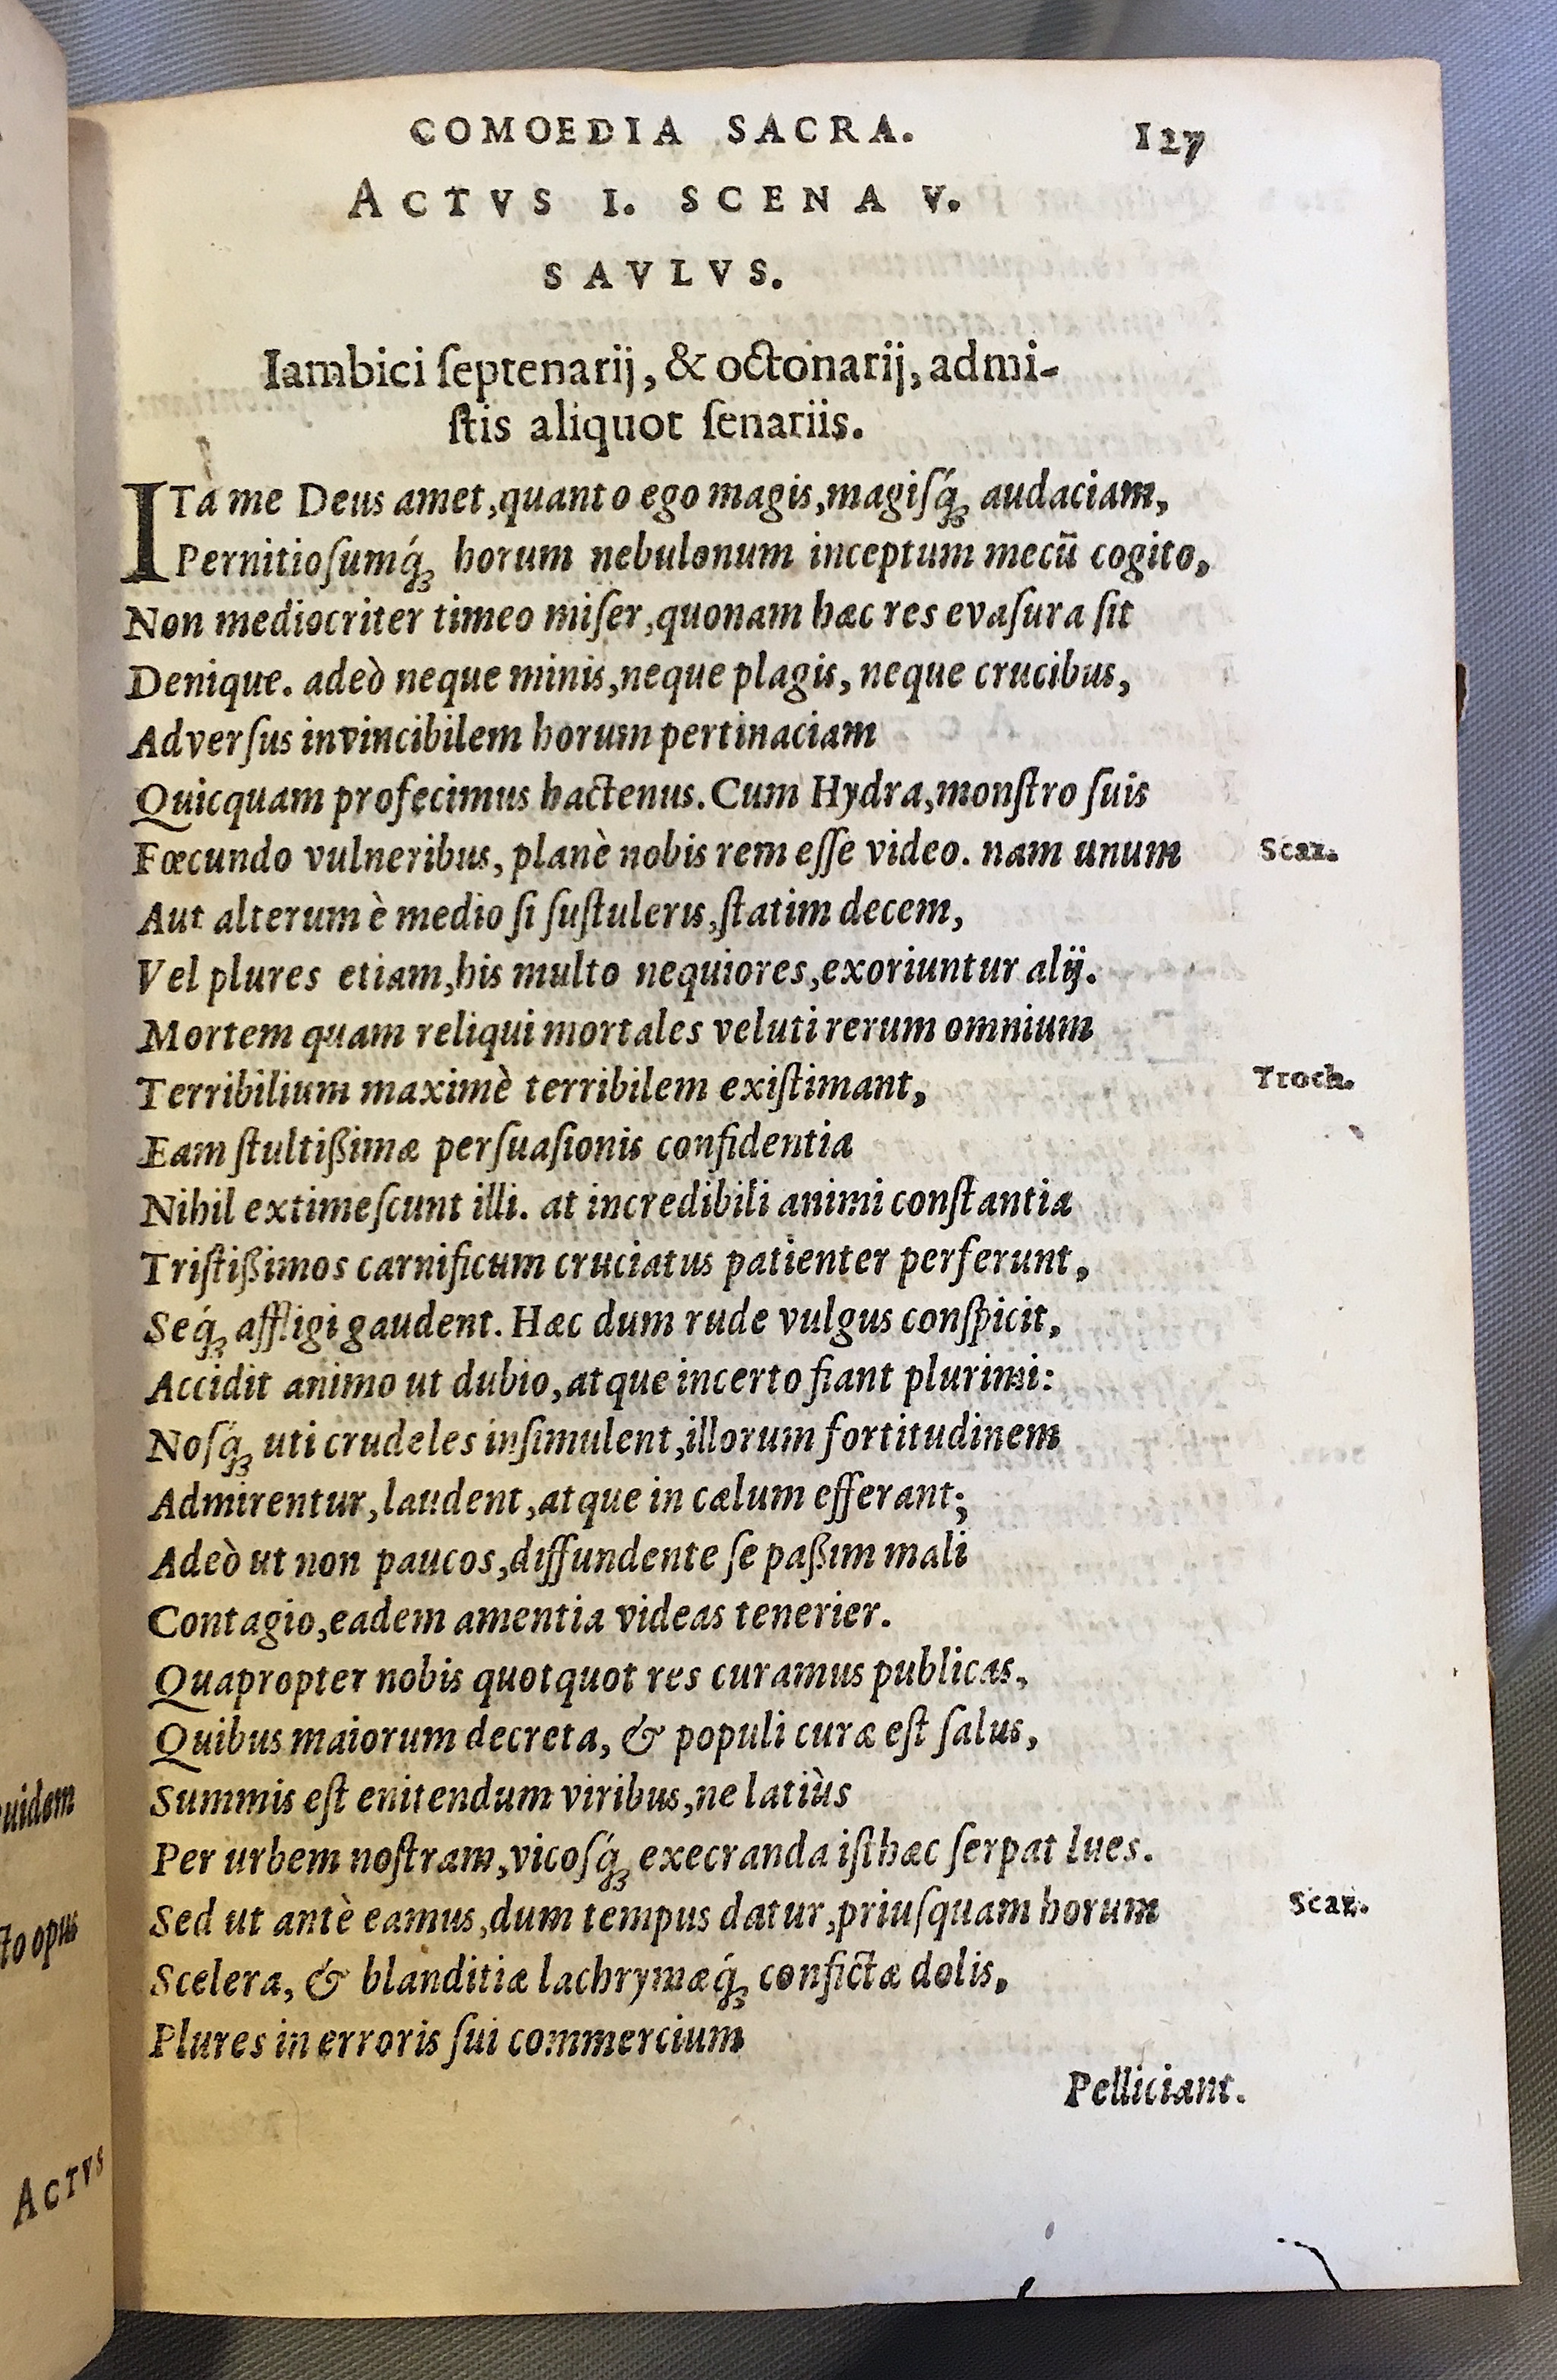 COMOEDIA SACRA. 127
ACTVS I. SCENA V.
SAVLVS.
Iambici ſeptenarij, & octonarij, admi-
ſtis aliquot ſenariis.
ITa me Deus amet, quanto ego magis, magiſq́ꝫ audaciam,
Pernitioſumq́ꝫ horum nebulonum inceptum mecũ cogito,
Non mediocriter timeo miſer, quonam hæc res evaſura ſit
Denique. adeò neque minis, neque plagis, neque crucibus,
Adverſus invincibilem horum pertinaciam
Quicquam profecimus hactenus. Cum Hydra, monſtro ſuis
Fœcundo vulneribus, planè nobis rem eſſe video. nam unum Scaz.
Aut alterum è medio ſi ſuſtuleris, ſtatim decem,
Vel plures etiam, his multo nequiores, exoriuntur alij.
Mortem quam reliqui mortales veluti rerum omnium
Terribilium maximè terribilem exiſtimant, Troch.
Eam ſtultißimæ perſuaſionis confidentia
Nihil extimeſcunt illi. at incredibili animi conſtantia
Triſtißimos carnificum cruciatus patienter perferunt,
Seq́ꝫ affligi gaudent. Hæc dum rude vulgus conſpicit,
Accidit animo ut dubio, atque incerto fiant plurimi:
Noſq́ꝫ uti crudeles inſimulent, illorum fortitudinem
Admirentur, laudent, atque in cælum efferant;
Adeò ut non paucos, diffundente ſe paßim mali
Contagio, eadem amentia videas tenerier.
Quapropter nobis quotquot res curamus publicas,
Quibus maiorum decreta, & populi curæ eſt ſalus,
Summis eſt enitendum viribus, ne latiùs
Per urbem noſtram, vicoſq́ꝫ execranda iſthæc ſerpat lues.
Sed ut antè eamus, dum tempus datur, priuſquam horum Scaz.
Scelera, & blanditiæ lachrymæq́ꝫ confictæ dolis,
Plures in erroris ſui commercium
Pelliciant.
uidem
ſto opus
ACTVS